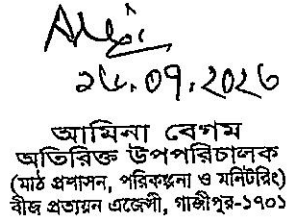 ২৮.০৭.২০২৬
আমিনা বেগম
অতিরিক্ত উপপরিচালক
(মাঠ প্রশাসন, পরিকল্পনা ও মনিটরিং)
বীজ প্রত্যয়ন এজেন্সী, গাজীপুর-১৭০১